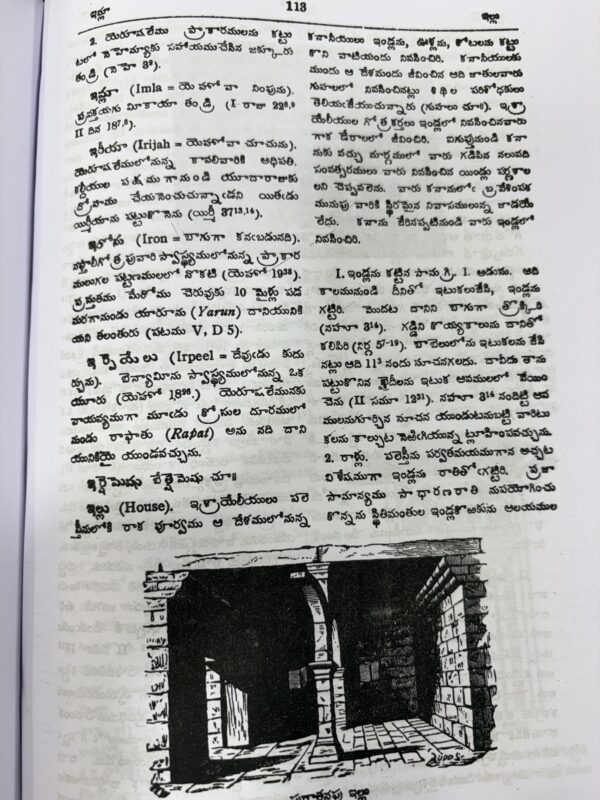 ఇమ్లా
113
ఇల్లు
2. యెరూషలేము ప్రాకారములను కట్టు
టలో నెహెమ్యాకు సహాయముచేసిన జక్కూరు
తండ్రి (నెహె 3²).
ఇమ్లా (Imla = యెహోవా నింపును).
ప్రవక్తయగు మీకాయా తండ్రి (I రాజు 22⁸,⁹
II దిన 18⁷,⁸).
ఇరీయా (Irijah = యెహోవా చూచును).
యెరూషలేములోనున్న కావలివారికి అధిపతి.
కల్దీయుల పక్షముగానుండి యూదారాజుకు
ద్రోహము చేయనెంచుచున్నాఁడని యితఁడు
యిర్మీయాను పట్టుకొనెను (యిర్మీ 37¹³,¹⁴).
ఇరోను (Iron = బాగుగా కనఁబడునది).
నఫ్తాలీగోత్రపువారి స్వాస్థ్యములోనున్న ప్రాకార
ములుగల పట్టణములలో నొకటి (యెహో 19³⁸).
ప్రస్తుతము మేరోము చెరువుకు 10 మైళ్లు పడ
మరగానుండు యారూను (Yarun) దానియునికి
యని తలంతురు (పటము V, D 5).
ఇర్పెయేలు (Irpeel = దేవుఁడు కుదు
ర్చును). బెన్యామీను స్వాస్థ్యములోనున్న ఒక
యూరు (యెహో 18²⁶.) యెరూషలేమునకు
వాయవ్యముగా మూఁడు క్రోసుల దూరములో
నుండు రాఫాతు (Rapat) అను నది దాని
యునికియై యుండవచ్చును.
ఇర్షెమెషు బేత్షెమెషు చూ॥
ఇల్లు (House). ఇశ్రాయేలీయులు పాలె
స్తీనులోకి రాక పూర్వము ఆ దేశములోనున్న
కనానీయులు ఇండ్లను, ఊళ్లను, కోటలను కట్టు
కొని వాటియందు నివసించిరి. కనానీయులకు
ముందు ఆ దేశమందు జీవించిన ఆది జాతులవారు
గుహలలో నివసించినట్లు శిథిల పరిశోధకులు
తెలియఁజేయుచున్నారు (గుహలు చూ॥). ఇశ్రా
యేలీయుల గోత్రకర్తలు ఇండ్లలో నివసించినవారు
గాక డేరాలలో జీవించిరి. ఐగుప్తునుండి కనా
నుకు వచ్చు మార్గములో వారు గడిపిన నలువది
సంవత్సరములు వారు నివసించిన యిండ్లు పర్ణశాల
లని చెప్పవలెను. వారు కనానులోఁ బ్రవేశింపక
మునుపు వారికి స్థిరమైన నివాసములున్న జాడయే
లేదు. కనాను జేరినప్పటినుండి వారు ఇండ్లలో
నివసించిరి.
I. ఇండ్లను కట్టిన సామగ్రి. 1. అడుసు. ఆది
కాలమునుండి దీనితో ఇటుకలుజేసి, ఇండ్లను
గట్టిరి. మొదట దానిని బాగుగా త్రొక్కిరి
(నహూ 3¹⁴). గడ్డిని కొయ్యకాలును దానితో
కలిపిరి (నిర్గ 5⁷⁻¹⁹). బాబెలులోను ఇటుకలను జేసి
నట్లు ఆది 11³ నందు సూచనగలదు. దావీదు తాను
పట్టుకొనిన ఖైదీలను ఇటుక ఆవములలో వేయిం
చెను (II సమూ 12³¹). నహూ 3¹⁴ నందిట్టి ఆవ
ములనుగూర్చిన సూచన యుండుటనుబట్టి వారిటు
కలను కాల్చుట నెఱిఁగియున్నట్లూహింపవచ్చును.
2. రాళ్లు. పాలెస్తీను పర్వతమయముగాన అచ్చట
విశేషముగా ఇండ్లను రాతితోఁగట్టిరి. ప్రజా
సామాన్యము సాధారణరాతి నుపయోగించు
కొన్నను స్థితిమంతుల ఇండ్లకొఱకును ఆలయముల
పురాతనపు ఇల్లు